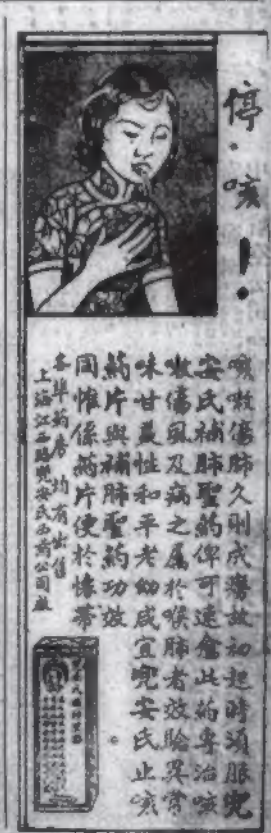 停·咳!
咳嗽傷肺久則成癆故初起時須服兜
安氏補肺聖葯俾可速愈此葯專治咳
嗽傷風及病之屬於喉肺者效驗異常
味甘美性和平老幼咸宜兜安氏止咳
葯片與補肺聖葯功效
同惟係葯片便於懷帶
各埠葯房均有出售
上海江西路兜安氏西葯公司啟